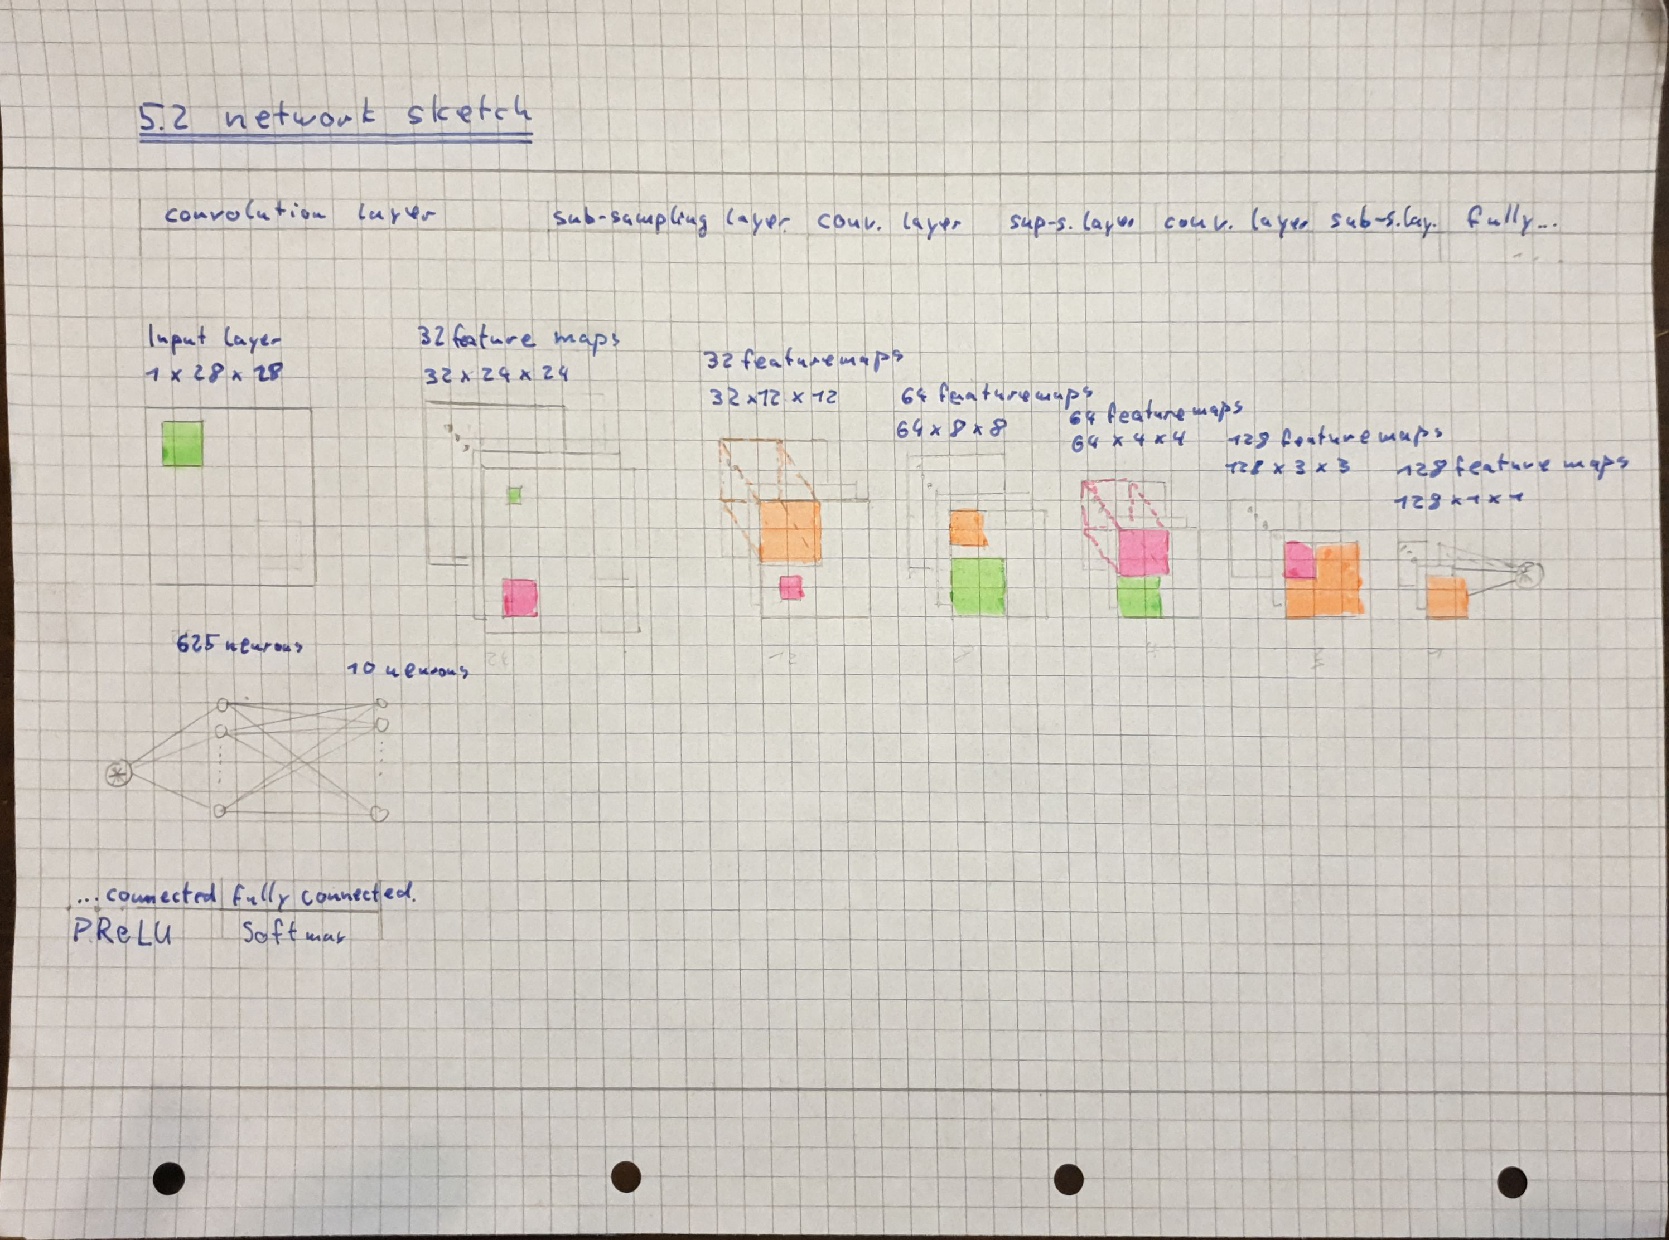 5.2 network sketch
convolution layer sub-sampling layer conv. layer sup-s. layer conv. layer sub-s.lay. fully...
Input layer
1 x 28 x 28
32 feature maps
32 x 24 x 24
32 featuremaps
32 x 12 x 12
64 featuremaps
64 x 8 x 8
64 featuremaps
64 x 4 x 4
128 featuremaps
128 x 3 x 3
128 feature maps
128 x 1 x 1
12
8
625 neurons
10 neurons
...connected fully connected.
PReLU Softmax